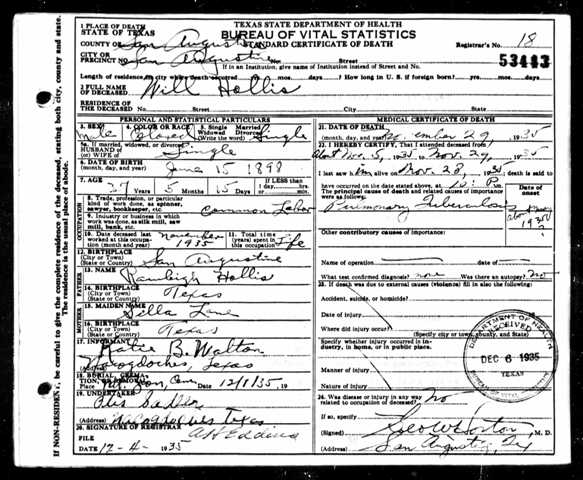 1 PLACE OF DEATH
STATE OF TEXAS
TEXAS STATE DEPARTMENT OF HEALTH
BUREAU OF VITAL STATISTICS
STANDARD CERTIFICATE OF DEATH
COUNTY OF San Augustine
CITY OR
PRECINCT NO. San Augustine
No. Street
Registrar's No. 18
53443
If in an Institution, give name of Institution instead of Street and No.
Length of residence in city where death occurred mos. days? How long in U. S. if foreign born? yrs. mos. days
2 FULL NAME
OF DECEASED Will Hollis
RESIDENCE OF
THE DECEASED No. Street City State
PERSONAL AND STATISTICAL PARTICULARS
3. SEX 4. COLOR OR RACE 5. Single Married
Widowed Divorced
(Write the word)
Male Colored Single
5a. If married, widowed, or divorced:
HUSBAND OF
(or) WIFE of Single
6. DATE OF BIRTH
(month, day, and year) June 15 1898
7. AGE 37 Years 5 Months 15 Days
If LESS than
1 day, hrs.
min.
OCCUPATION
8. Trade, profession, or particular
kind of work done, as spinner,
sawyer, bookkeeper, etc Common Labor
9. Industry or business in which
work was done, as silk mill, saw
mill, bank, etc.
10. Date deceased last
worked at this occupa-
tion (month and year) November 1935
11. Total time
(years) spent in
this occupation Life
12. BIRTHPLACE
(City or Town)
(State or Country) San Augustine
FATHER
13. NAME Rawleigh Hollis
14. BIRTHPLACE
(City or Town)
(State or Country) Texas
MOTHER
15. MAIDEN NAME Silla Lane
16. BIRTHPLACE
(City or Town)
(State or Country) Texas
17. INFORMANT Katie B. Walton
Nacogdoches, Texas
18. BURIAL, CREMA-
TION, OR REMOVAL
Place Mt. Zion, Cem 12/1/35, 19
19. UNDERTAKER
(Address) Nacogdoches Texas
20. SIGNATURE OF REGISTRAR
A H Eddins
FILE
DATE 12-4- 1935
MEDICAL CERTIFICATE OF DEATH
21. DATE OF DEATH
(month, day, and year) November 29, 1935
22. I HEREBY CERTIFY, That I attended deceased from
About Nov. 5, 1935 to Nov. 29, 1935
I last saw him alive on Nov. 28, 1935 death is said to
have occurred on the date stated above, at 10: P m.
The principal cause of death and related causes of importance
were as follows:
Date of
onset
Pulmonary Tuberculosis
1935
Other contributory causes of importance:
Name of operation — date of —
What test confirmed diagnosis? none Was there an autopsy? No
23. If death was due to external causes (violence) fill in also the following:
Accident, suicide, or homicide?
Date of injury
Where did injury occur?
(Specify city or town, county, and state.
Specify whether injury occurred in in-
dustry, in home, or in public place.
Manner of injury
Nature of injury
24. Was disease or injury in any way
related to occupation of deceased? No
If so, specify
M. D.
San Augustine, Tex
DEPARTMENT OF HEALTH
RECEIVED
DEC 6 1935
TEXAS
BUREAU OF VITAL STATISTICS